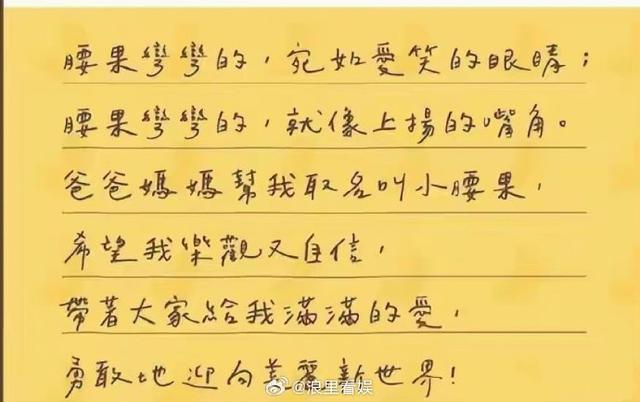 腰果彎彎的，宛如愛笑的眼睛；
腰果彎彎的，就像上揚的嘴角。
爸爸媽媽幫我取名叫小腰果，
希望我樂觀又自信，
帶著大家給我滿滿的愛，
勇敢地迎向美麗新世界！
@浪里看娱